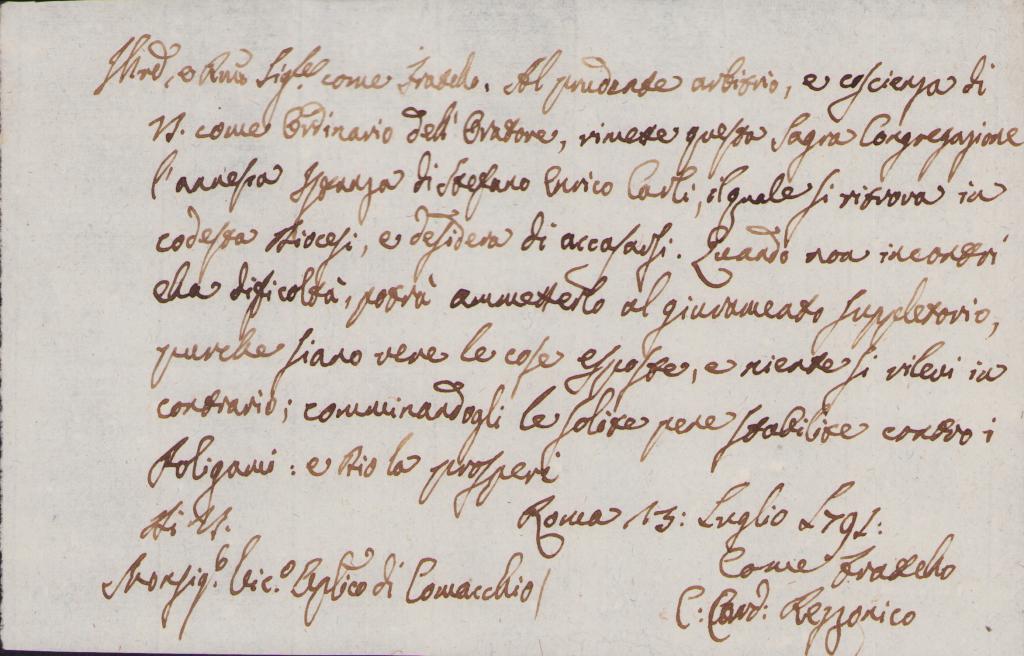 Ill.re, e R.mo Sig.re come Fratello. Al prudente arbitrio, e coscienza di
V.S. come Ordinario dell'Oratore, rimette questa Sagra Congregazione
l'annessa Istanza di Stefano Enrico Carli, il quale si ritrova in
codesta Diocesi, e desidera di accasarsi. Quando non incontri
ella difficoltà, potrà ammetterlo al giuramento suppletorio,
purche siano vere le cose esposte, e niente si rilevi in
contrario; comminandogli le solite pene stabilite contro i
Poligami: e Dio la prosperi
Di V.S.
Roma 13: Luglio 1791:
Come Fratello
Monsig.r Vic.o Aplico di Comacchio/
C: Card: Rezzonico